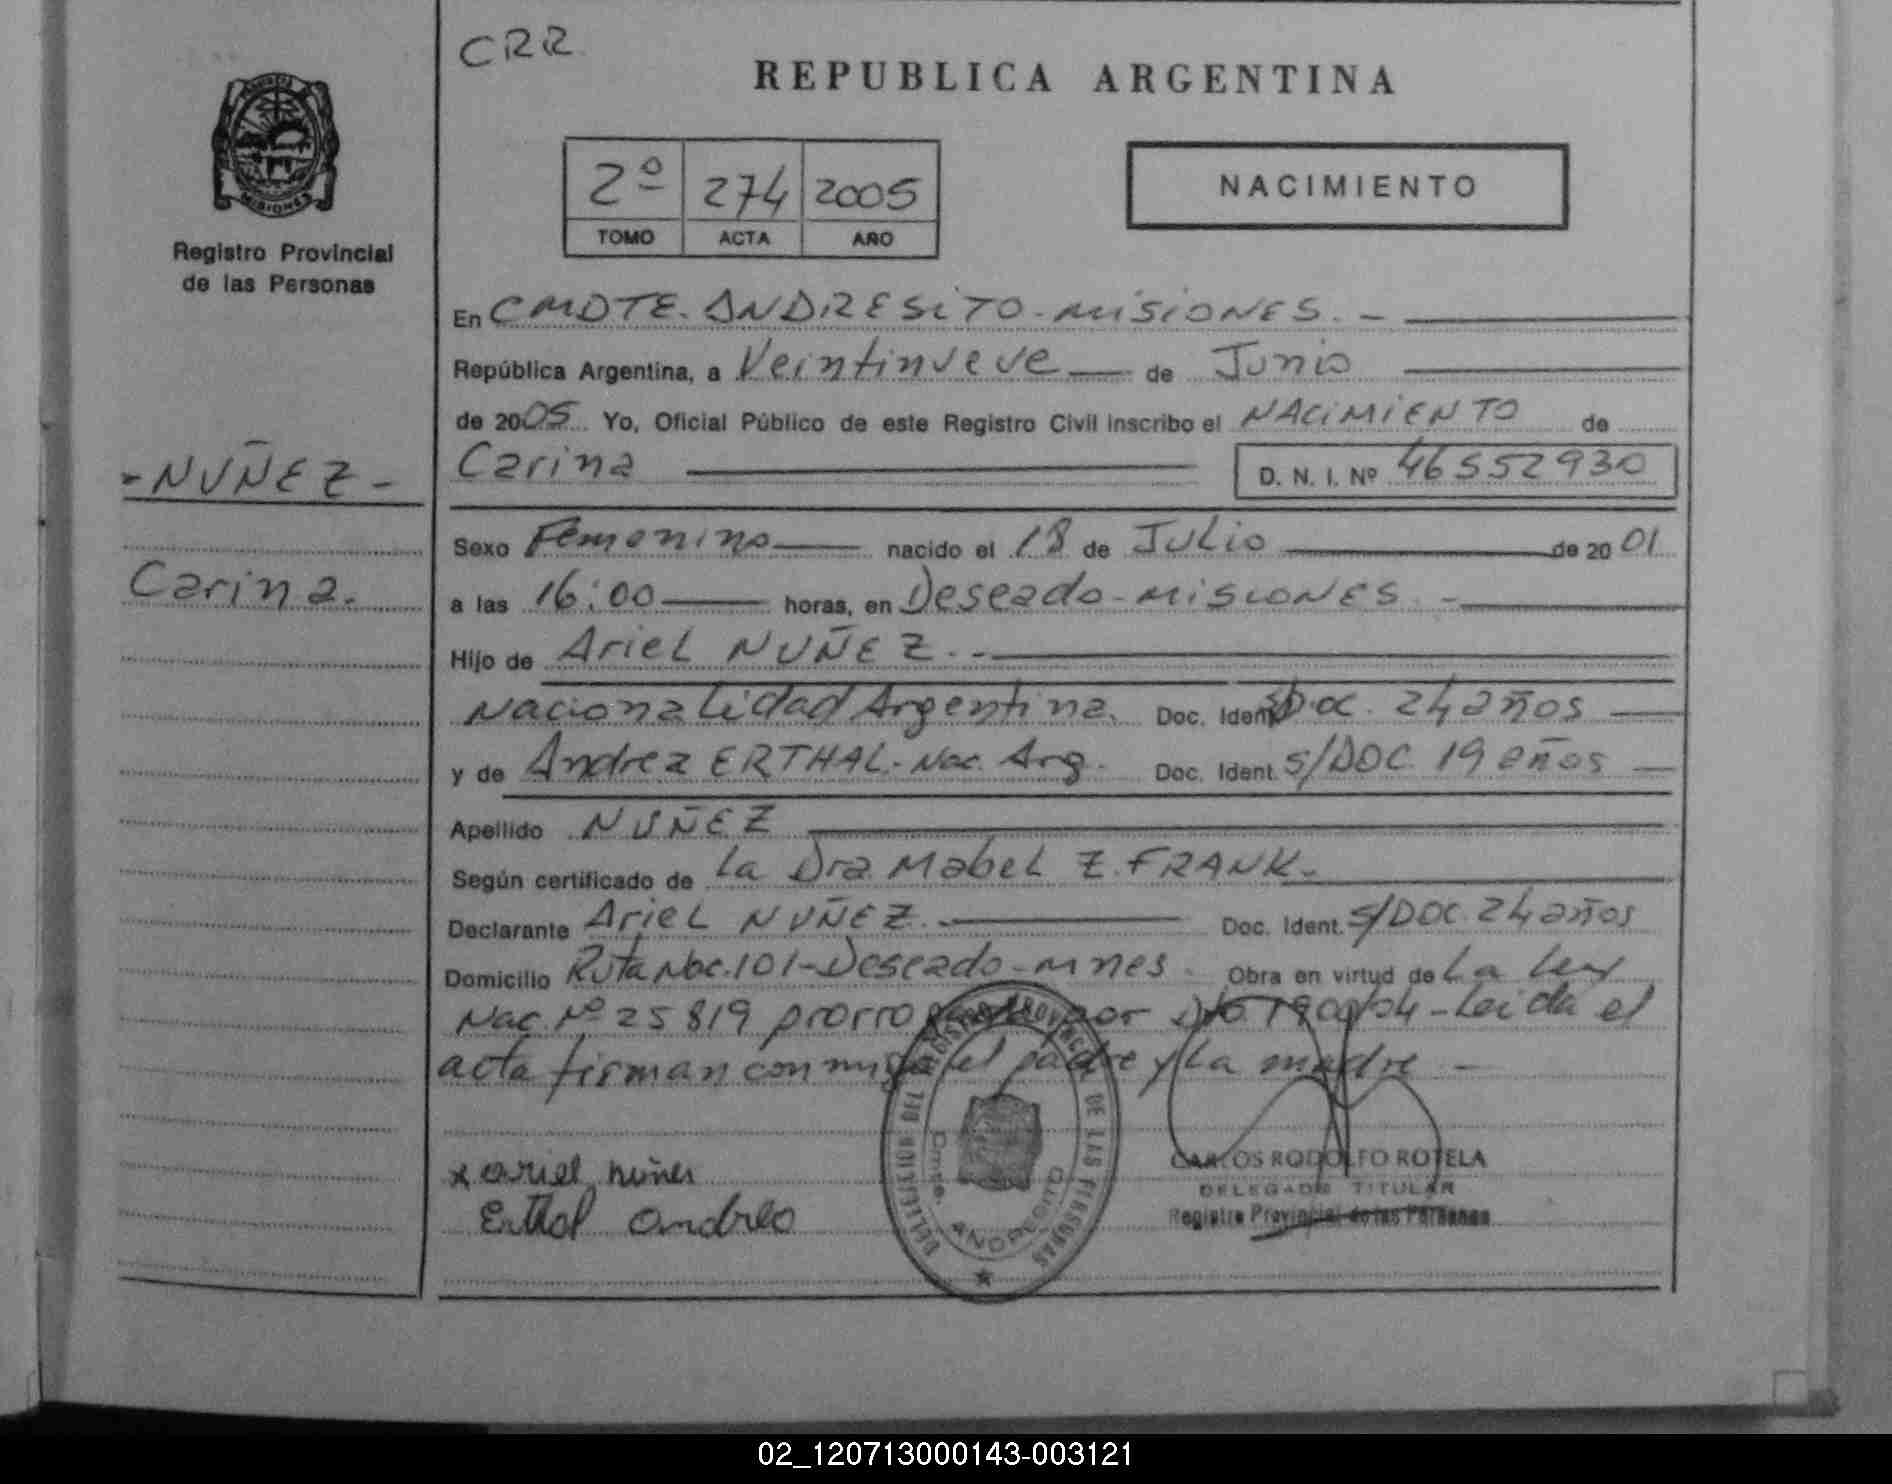 CRR
REPUBLICA ARGENTINA
MISIONES
Registro Provincial
de las Personas
2º 274 2005
TOMO ACTA AÑO
NACIMIENTO
En CMDTE. ANDRESITO - MISIONES. -
República Argentina, a Veintinueve de Junio
de 2005 Yo, Oficial Público de este Registro Civil inscribo el NACIMIENTO de
- NUÑEZ -
Carina D. N. I. Nº 46552930
Sexo Femenino nacido el 18 de Julio de 20 01
Carina.
a las 16:00 horas, en Deseado - MISIONES. -
Hijo de Ariel NUÑEZ. -
Nacionalidad Argentina. Doc. Ident. S/Doc. 24 años
y de Andrea ERTHAL. Nac. Arg. Doc. Ident. S/DOC. 19 años
Apellido NUÑEZ
Según certificado de La Dra. Mabel Z. FRANK. -
Declarante Ariel NUÑEZ. Doc. Ident. S/DOC. 24 años
Domicilio Ruta Nac. 101 - Deseado - Mnes. Obra en virtud de La Ley
Nac. Nº 25819 prorrogada por Dto 1900/04 - Leida el
acta firman conmigo el padre y La madre -
x ariel nuñes
Erthal andrea
DELEGACION DEL REGISTRO PROVINCIAL DE LAS PERSONAS
Cmdte. ANDRESITO
CARLOS RODOLFO ROTELA
DELEGADO TITULAR
Registro Provincial de las Personas
02_120713000143-003121